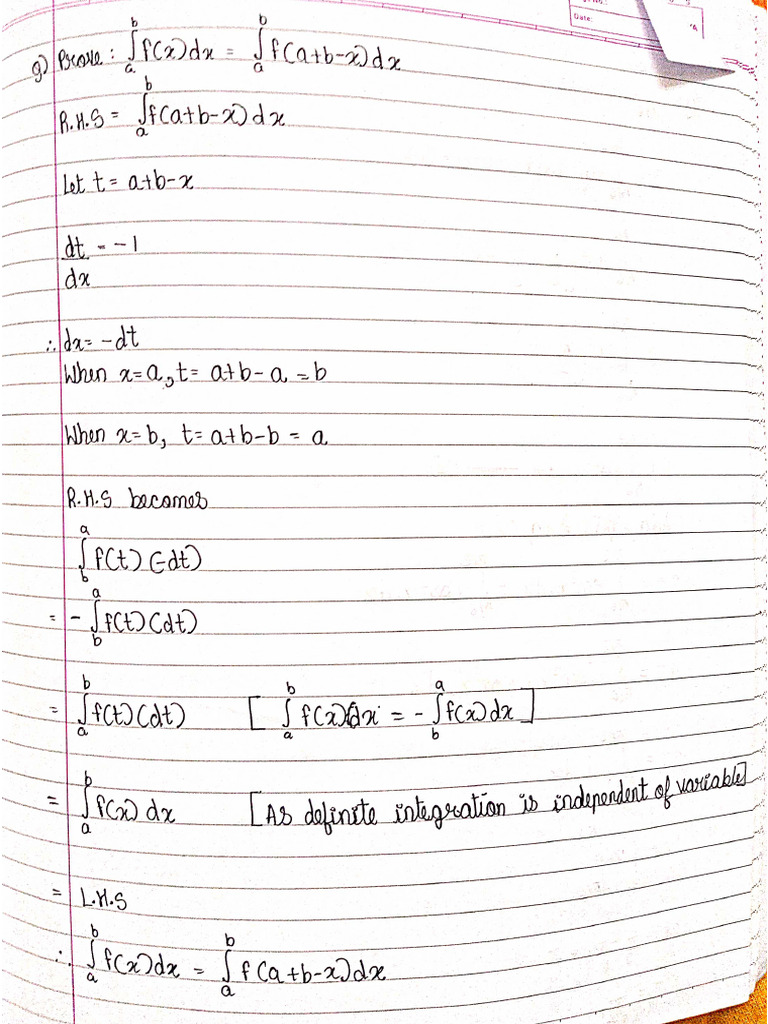 Date:
g) Prove: ∫ₐᵇ f(x) dx = ∫ₐᵇ f(a+b-x) dx
R.H.S = ∫ₐᵇ f(a+b-x) dx
Let t = a+b-x
dt/dx = -1
∴ dx = -dt
When x=a, t= a+b-a = b
When x=b, t= a+b-b = a
R.H.S becomes
∫_b^a f(t) (-dt)
= - ∫_b^a f(t) (dt)
= ∫_a^b f(t) (dt) [ ∫_a^b f(x) dx = - ∫_b^a f(x) dx ]
= ∫_a^b f(x) dx [As definite integration is independent of variable]
= L.H.S
∴ ∫_a^b f(x) dx = ∫_a^b f(a+b-x) dx